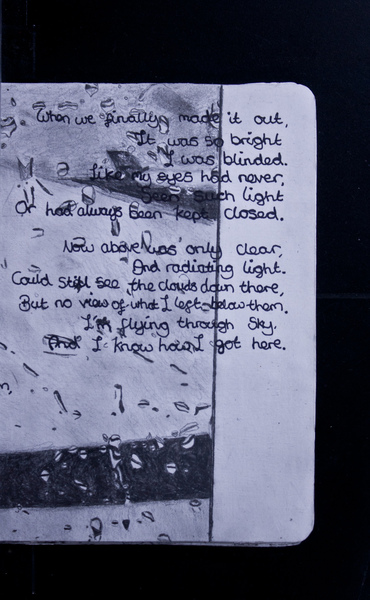 When we finally made it out,
It was so bright
I was blinded.
Like my eyes had never,
Seen such light
Or had always been kept closed.
Now above was only clear,
And radiating light.
Could still see the clouds down there,
But no view of what I left below them.
I'm flying through sky.
And I know how I got here.